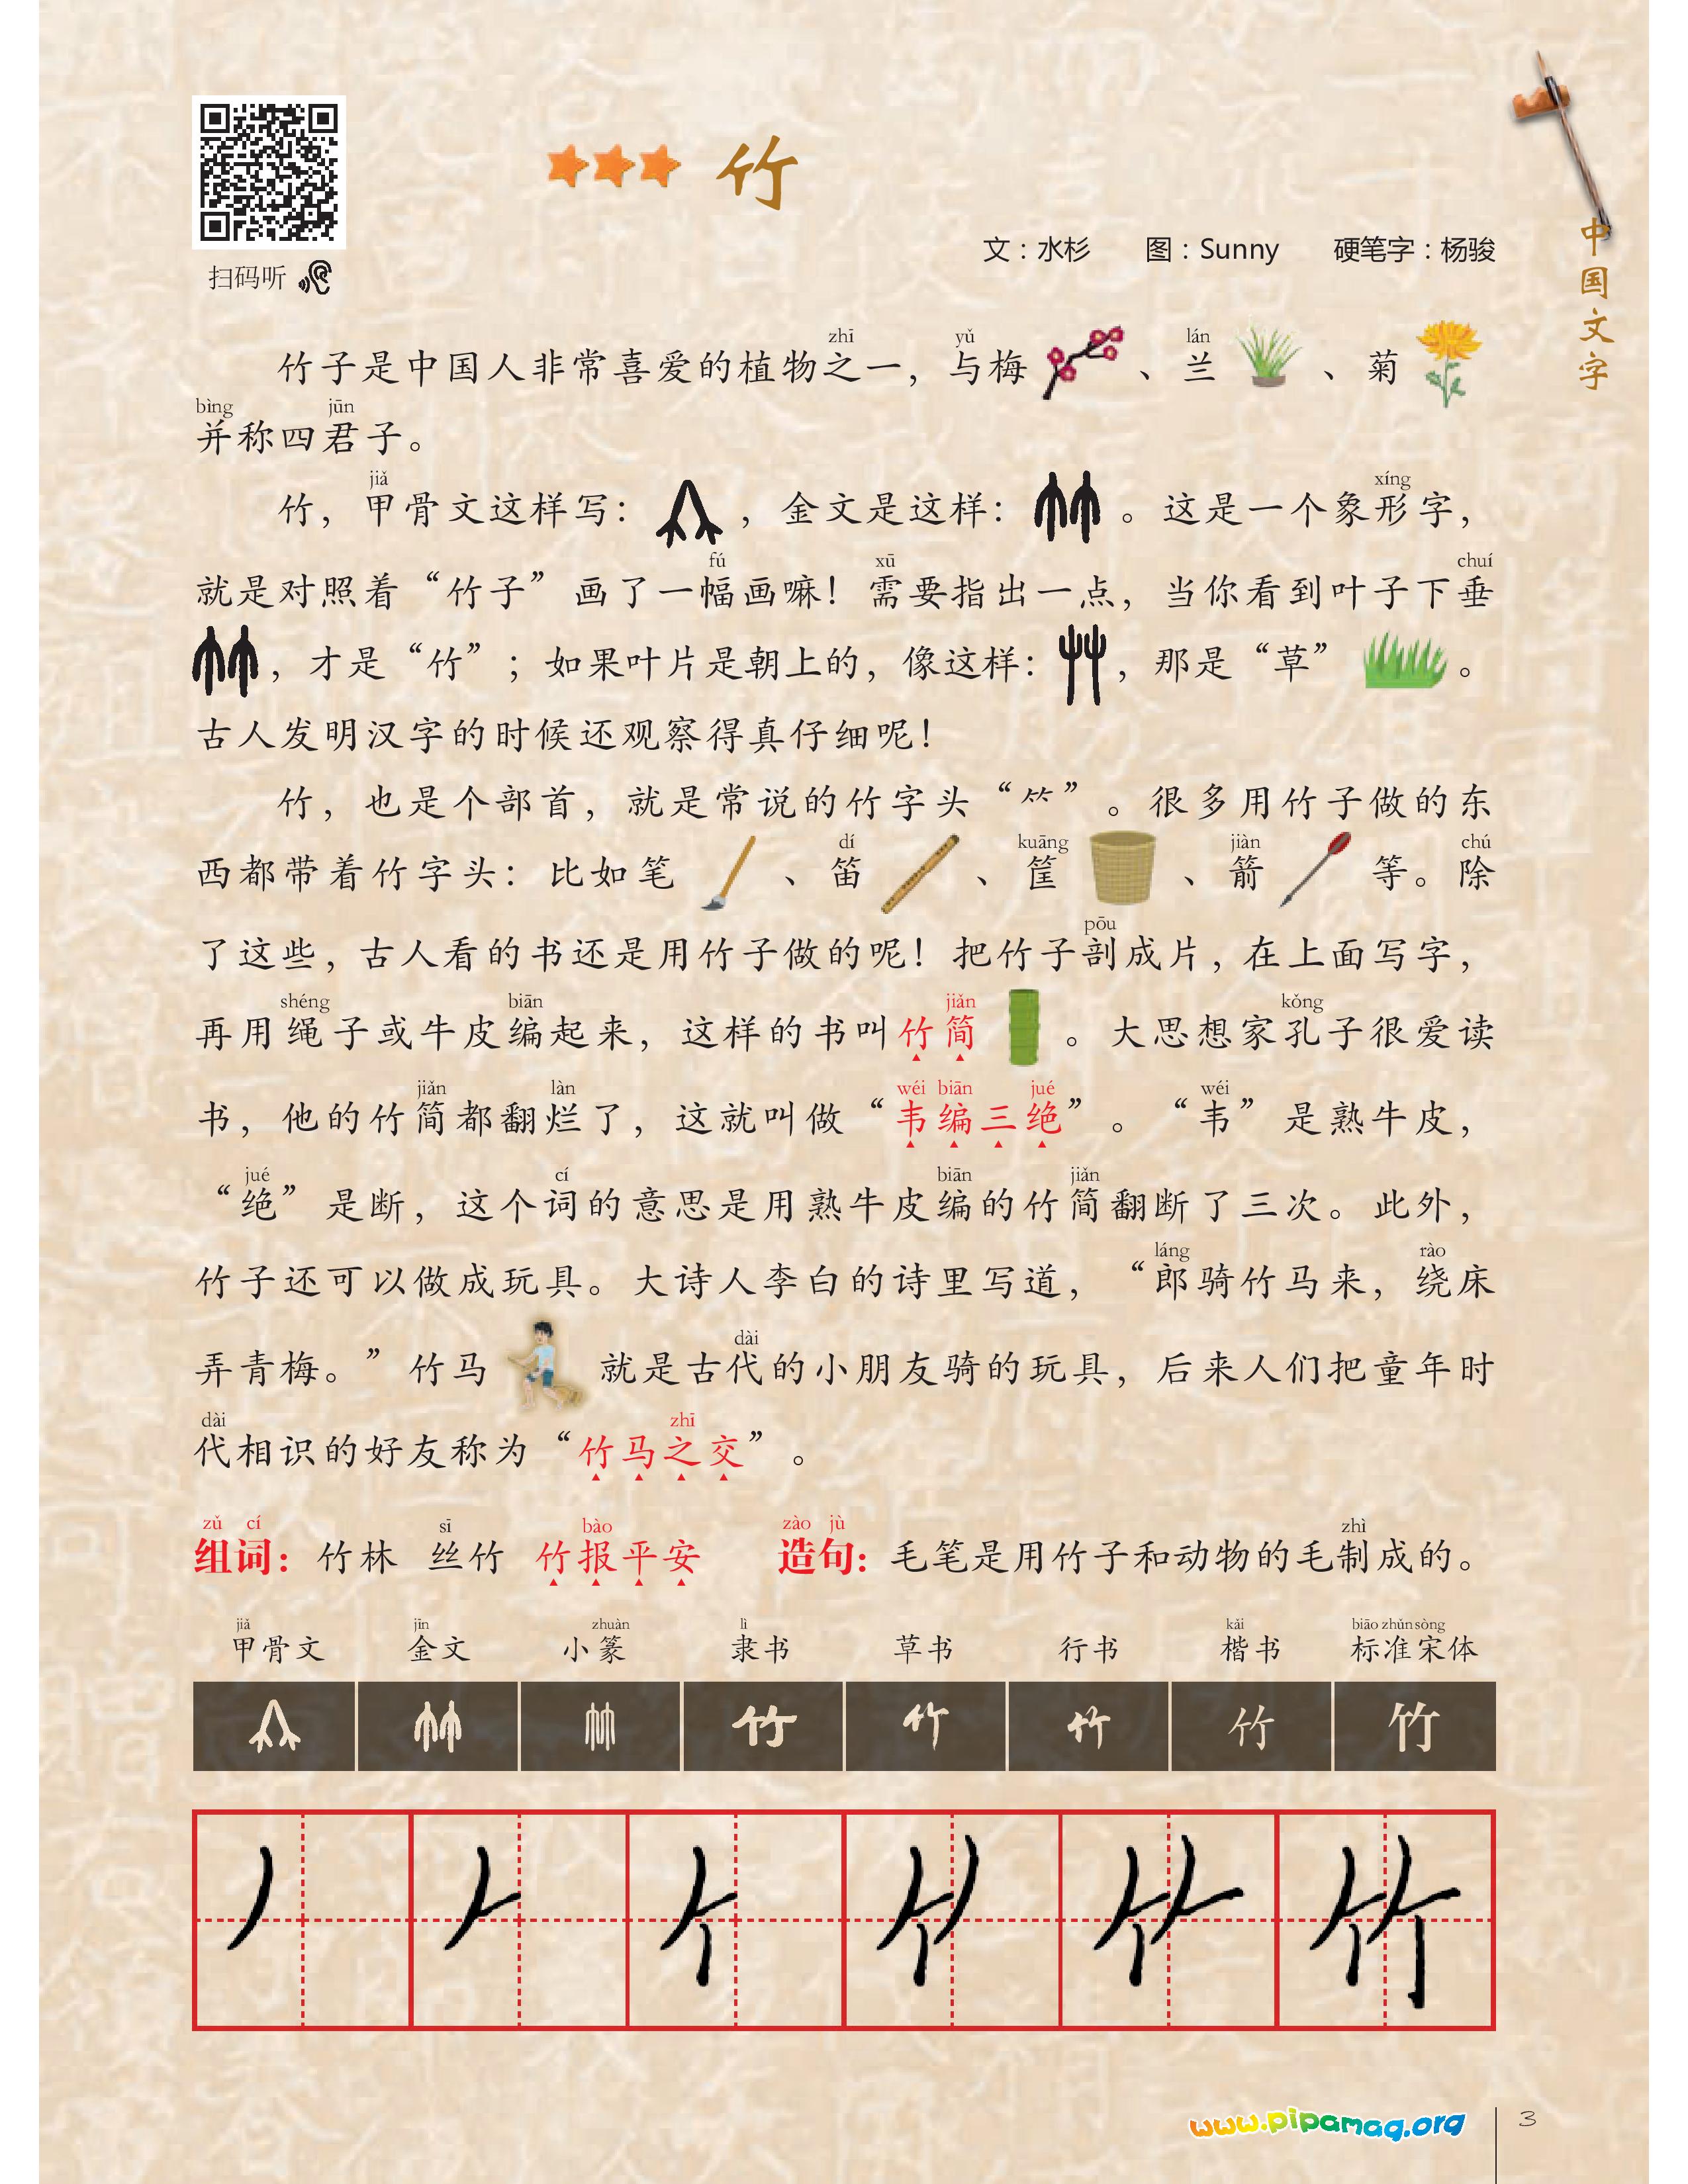 竹
文：水杉 图：Sunny 硬笔字：杨骏
扫码听
中国文字
zhī yǔ lán
竹子是中国人非常喜爱的植物之一，与梅、兰、菊
bìng jūn
并称四君子。
jiǎ xíng
竹，甲骨文这样写：，金文是这样：。这是一个象形字，
fú xū chuí
就是对照着“竹子”画了一幅画嘛！需要指出一点，当你看到叶子下垂
，才是“竹”；如果叶片是朝上的，像这样：，那是“草”。
古人发明汉字的时候还观察得真仔细呢！
竹，也是个部首，就是常说的竹字头“⺮”。很多用竹子做的东
dí kuāng jiàn chú
西都带着竹字头：比如笔、笛、筐、箭等。除
pōu
了这些，古人看的书还是用竹子做的呢！把竹子剖成片，在上面写字，
shéng biān jiǎn kǒng
再用绳子或牛皮编起来，这样的书叫竹简。大思想家孔子很爱读
jiǎn làn wéi biān jué wéi
书，他的竹简都翻烂了，这就叫做“韦编三绝”。“韦”是熟牛皮，
jué cí biān jiǎn
“绝”是断，这个词的意思是用熟牛皮编的竹简翻断了三次。此外，
láng rào
竹子还可以做成玩具。大诗人李白的诗里写道，“郎骑竹马来，绕床
dài
弄青梅。”竹马就是古代的小朋友骑的玩具，后来人们把童年时
dài zhī
代相识的好友称为“竹马之交”。
zǔ cí sī bào zào jù zhì
组词：竹林 丝竹 竹报平安 造句：毛笔是用竹子和动物的毛制成的。
jiǎ jīn zhuàn lì kǎi biāo zhǔn sòng
甲骨文 金文 小篆 隶书 草书 行书 楷书 标准宋体
竹 竹 竹 竹 竹 竹 竹 竹
竹
www.pipamag.org 3